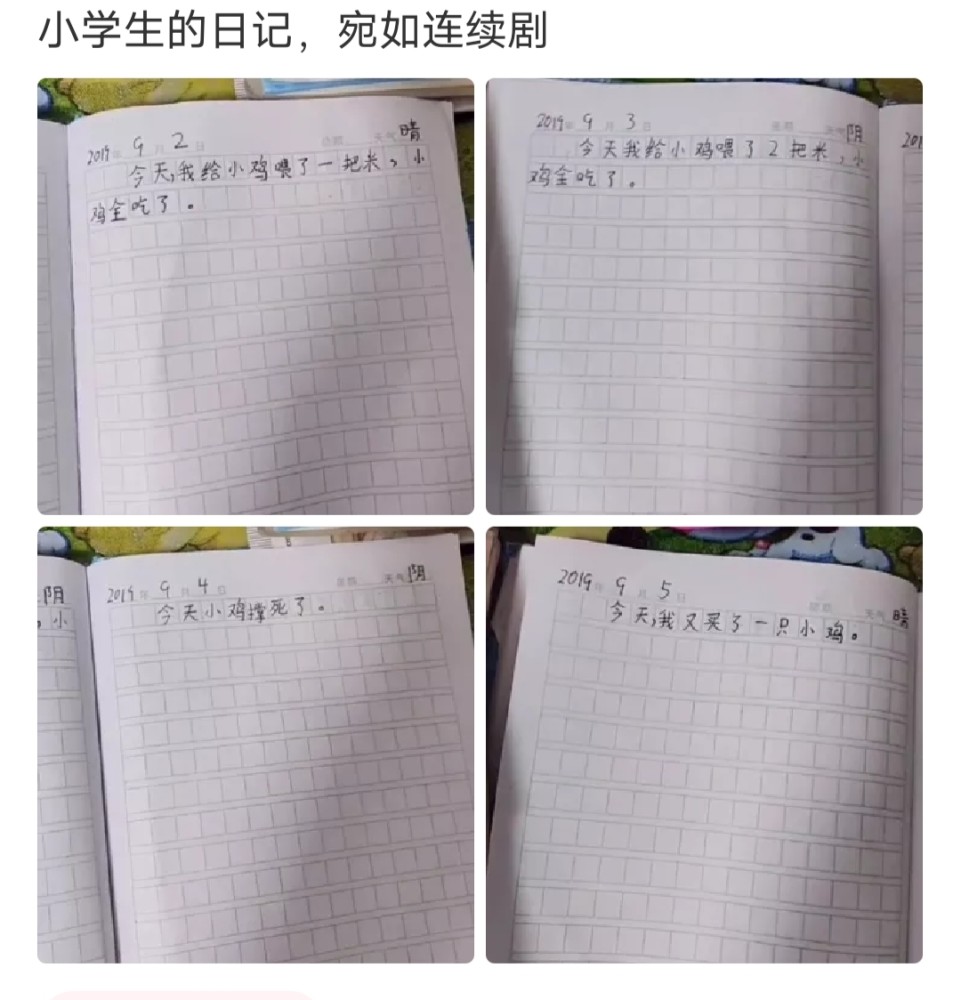 小学生的日记，宛如连续剧
2019年 9月 2日 星期 天气 晴
今天,我给小鸡喂了一把米，小
鸡全吃了。
2019年 9月 3日 星期 天气 阴
今天我给小鸡喂了2把米，小
鸡全吃了。
201
阴
，小
2019年 9月 4日 星期 天气 阴
今天小鸡撑死了。
2019年 9月 5日 星期 天气 晴
今天,我又买了一只小鸡。